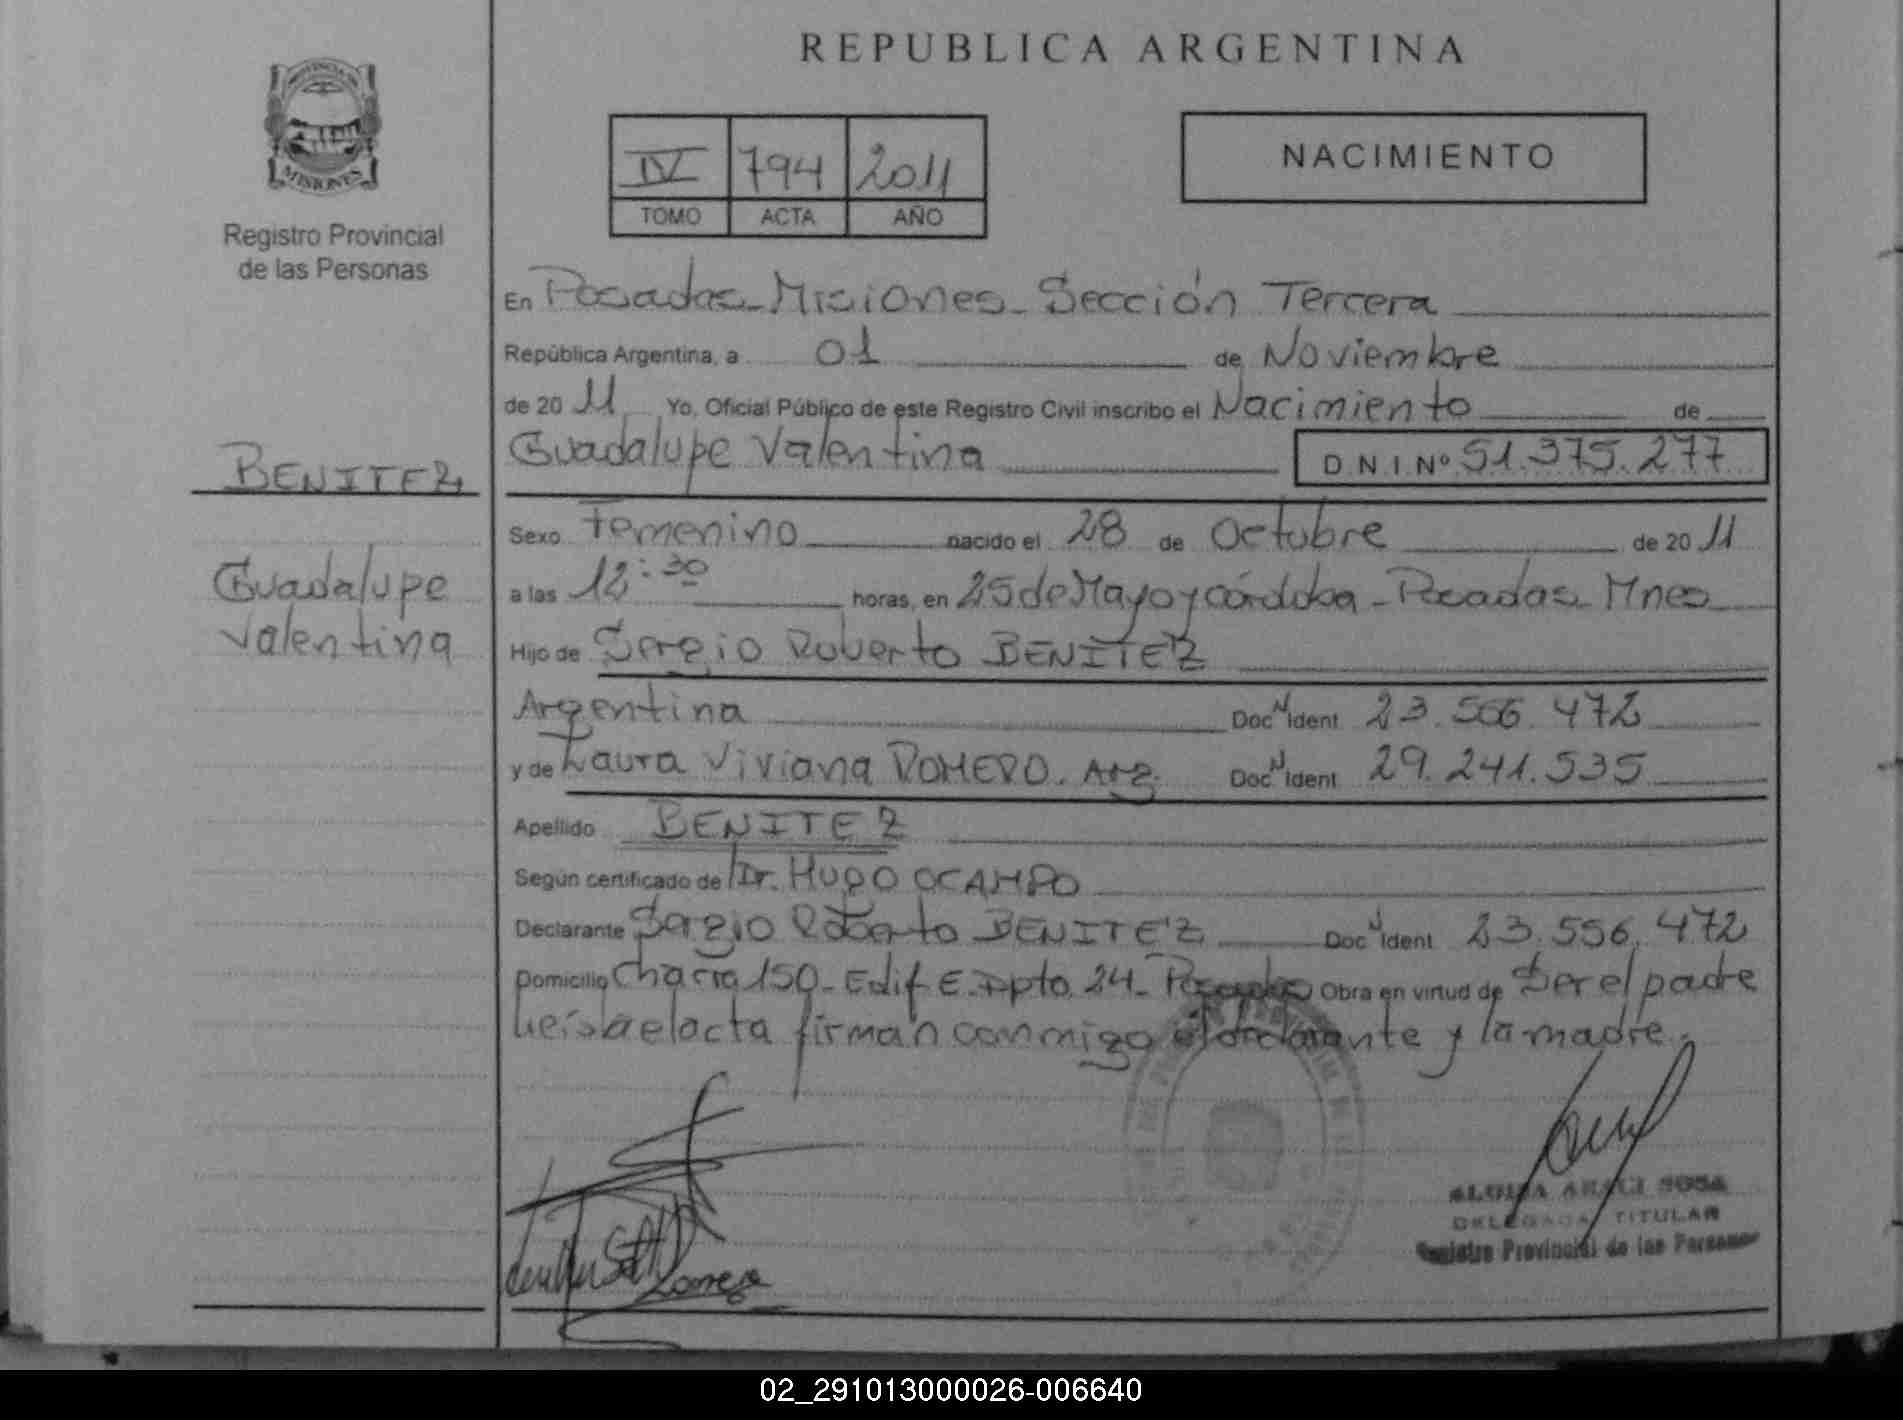 REPUBLICA ARGENTINA
PROVINCIA DE
MISIONES
Registro Provincial
de las Personas
IV 794 2011
TOMO ACTA AÑO
NACIMIENTO
En Posadas - Misiones - Sección Tercera
República Argentina, a 01 de Noviembre
de 2011 Yo, Oficial Público de este Registro Civil inscribo el Nacimiento de
Guadalupe Valentina D N I Nº 51.375.277
BENITEZ
Guadalupe
Valentina
Sexo Femenino nacido el 28 de Octubre de 2011
a las 12:30 horas, en 25 de Mayo y córdoba - Posadas - Mnes
Hijo de Sergio Roberto BENITEZ
Argentina Doc N Ident 23.556.472
y de Laura Viviana ROMERO. Arg. Doc N Ident 29.241.535
Apellido BENITEZ
Según certificado de Dr. HUGO OCAMPO
Declarante Sergio Roberto BENITEZ Doc N Ident 23.556.472
Domicilio Chacra 150 - Edif E. Dpto. 24 - Posadas Obra en virtud de Ser el padre
leísdaelacta firman conmigo el declarante y la madre.
SOSA
DELEGADA TITULAR
Registro Provincial de las Personas
02_291013000026-006640